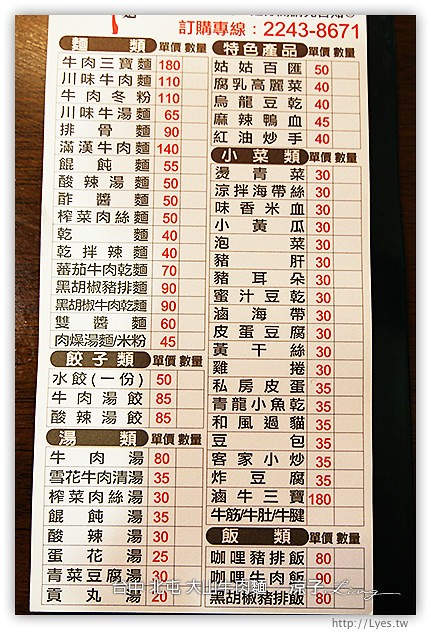 訂購專線：2243-8671
麵類 單價 數量
牛肉三寶麵 180
川味牛肉麵 110
牛肉冬粉 110
川味牛湯麵 65
排骨麵 90
滿漢牛肉麵 140
餛飩麵 55
酸辣湯麵 50
酢醬麵 50
榨菜肉絲麵 50
乾麵 40
乾拌辣麵 40
蕃茄牛肉乾麵 70
黑胡椒豬排麵 90
黑胡椒牛肉乾麵 90
雙醬麵 60
肉燥湯麵/米粉 45
餃子類 單價 數量
水餃(一份) 50
牛肉湯餃 85
酸辣湯餃 85
湯類 單價 數量
牛肉湯 80
雪花牛肉清湯 35
榨菜肉絲湯 30
餛飩湯 35
酸辣湯 30
蛋花湯 25
青菜豆腐湯 30
貢丸湯 20
特色產品 單價 數量
姑姑百匯 50
腐乳高麗菜 40
烏龍豆乾 40
麻辣鴨血 45
紅油炒手 40
小菜類 單價 數量
燙青菜 30
涼拌海帶絲 30
味香米血 30
小黃瓜 30
泡菜 30
豬肝 30
豬耳朵 30
蜜汁豆乾 30
滷海帶 30
皮蛋豆腐 30
黃干絲 30
雞捲 30
私房皮蛋 35
青龍小魚乾 35
和風過貓 35
豆包 35
客家小炒 35
炸豆腐 35
滷牛三寶 180
牛筋/牛肚/牛腱
飯類 單價 數量
咖哩豬排飯 80
咖哩牛肉飯 90
黑胡椒豬排飯 80
台中 北屯 大山牛肉麵
涼子
http://Lyes.tw